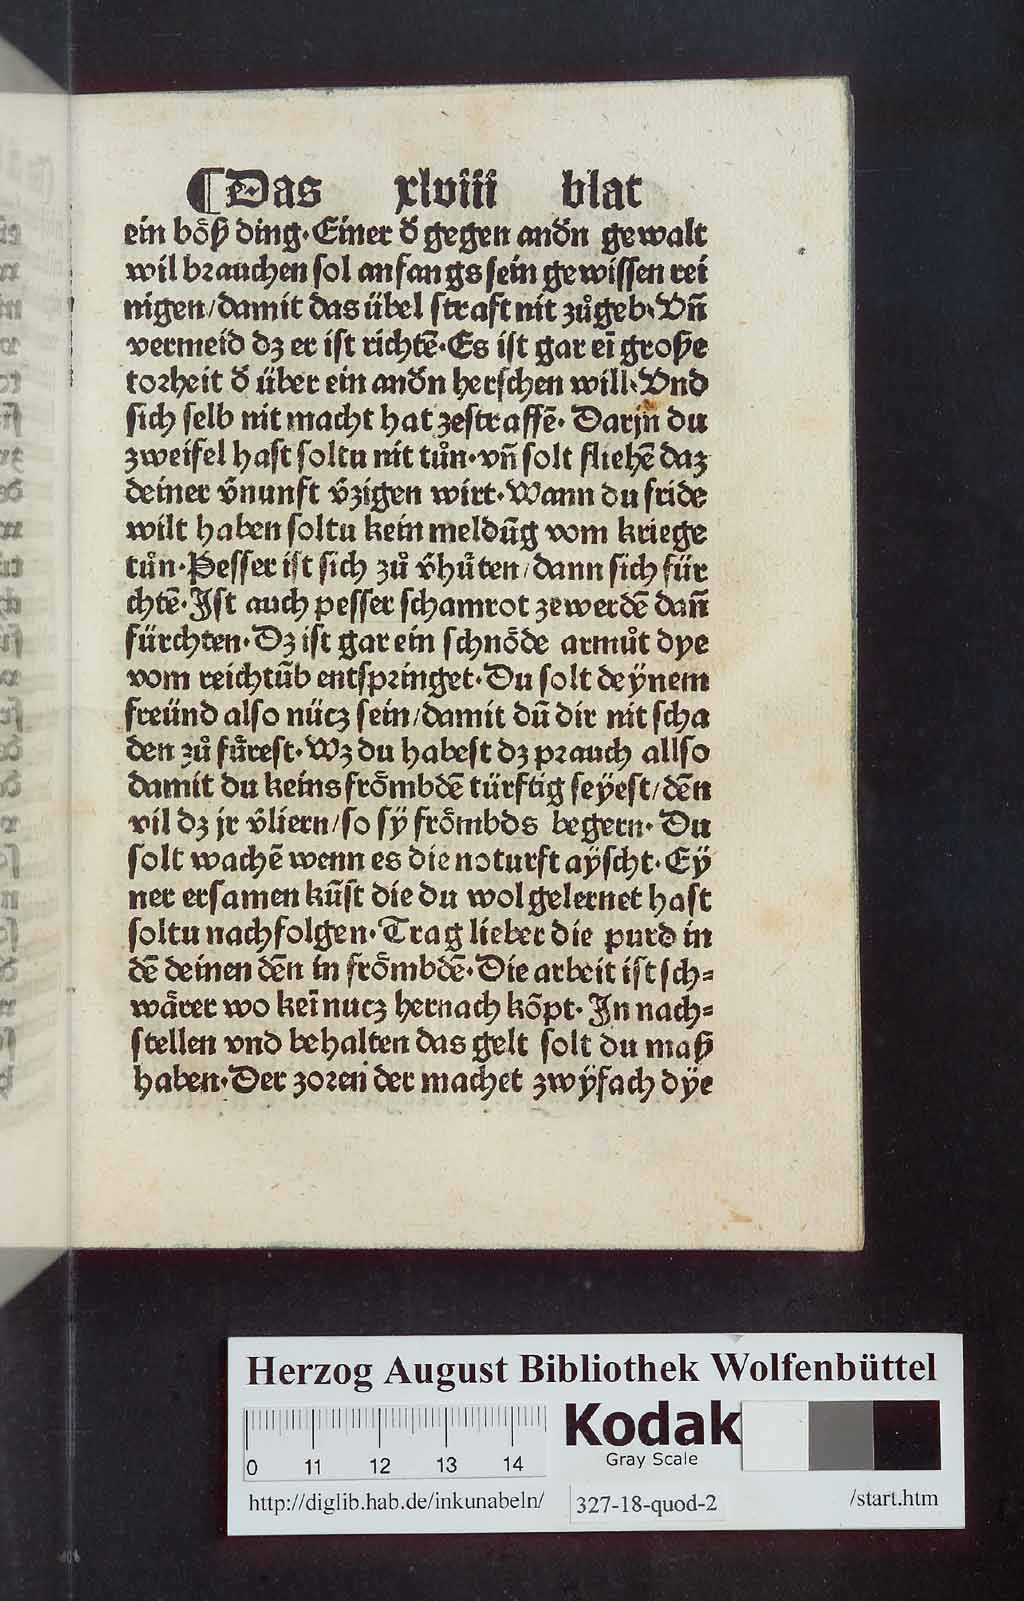 ¶Das xlviii blat
ein böß ding·Einer đ gegen anđn gewalt
wil brauchen sol anfangs sein gewissen rei
nigen/damit das übel straft nit zůgeb·Vñ
vermeid dz er ist richtē·Es ist gar eī große
torheit đ über ein anđn herschen will·Vnd
sich selb nit macht hat zestraffē· Darjn du
zweifel hast soltu nit tůn·vñ solt fliehē daz
deiner v̄nunft v̄zigen wirt·Wann du fride
wilt haben soltu kein meldūg vom kriege
tůn·Pesser ist sich zů v̄hůten/dann sich für
chtē·Jst auch pesser schamrot zewerdē dañ
fürchten·Dz ist gar ein schnöde armůt dye
vom reichtūb entspringet·Du solt deÿnem
freünd also nücz sein/damit dū dir nit scha
den zů fůrest·Wz du habest dz prauch allso
damit du keins frömbdē türftig seÿest/dēn
vil dz jr v̄liern/so sÿ frömbds begern· Du
solt wachē wenn es die noturft aÿscht·Eÿ
ner ersamen kūst die du wol gelernet hast
soltu nachfolgen·Trag lieber die purd in
dē deinen dēn in frömbdē·Die arbeit ist sch=
wårer wo keī nucz hernach kōpt· Jn nach=
stellen vnd behalten das gelt solt du maß
haben·Der zoren der machet zwÿfach dÿe
Herzog August Bibliothek Wolfenbüttel
0 11 12 13 14
Kodak
Gray Scale
http://diglib.hab.de/inkunabeln/ 327-18-quod-2 /start.htm